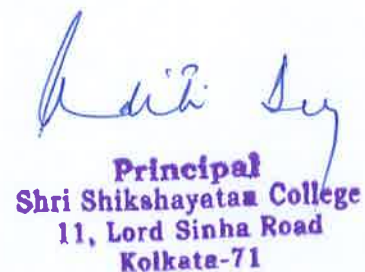 Aditi Dey
Principal
Shri Shikshayatan College
11, Lord Sinha Road
Kolkata-71